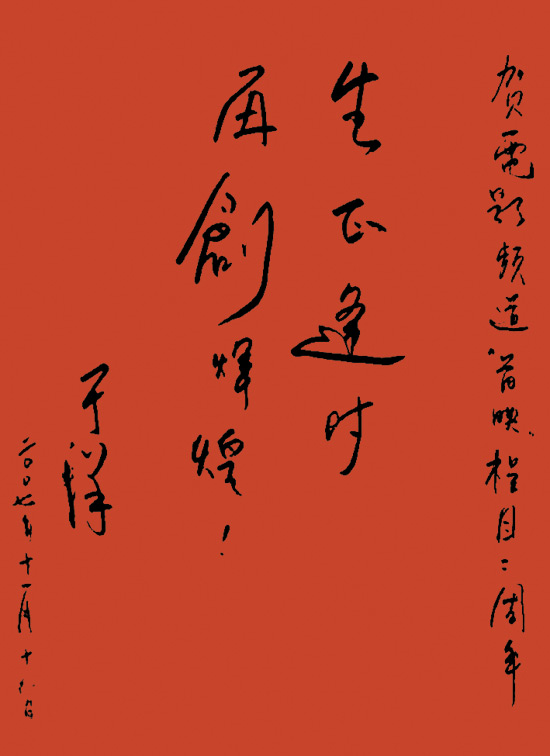 贺電影频道“首映”栏目二周年
生正逢时
再創辉煌！
于洋
二〇〇七年十一月十日